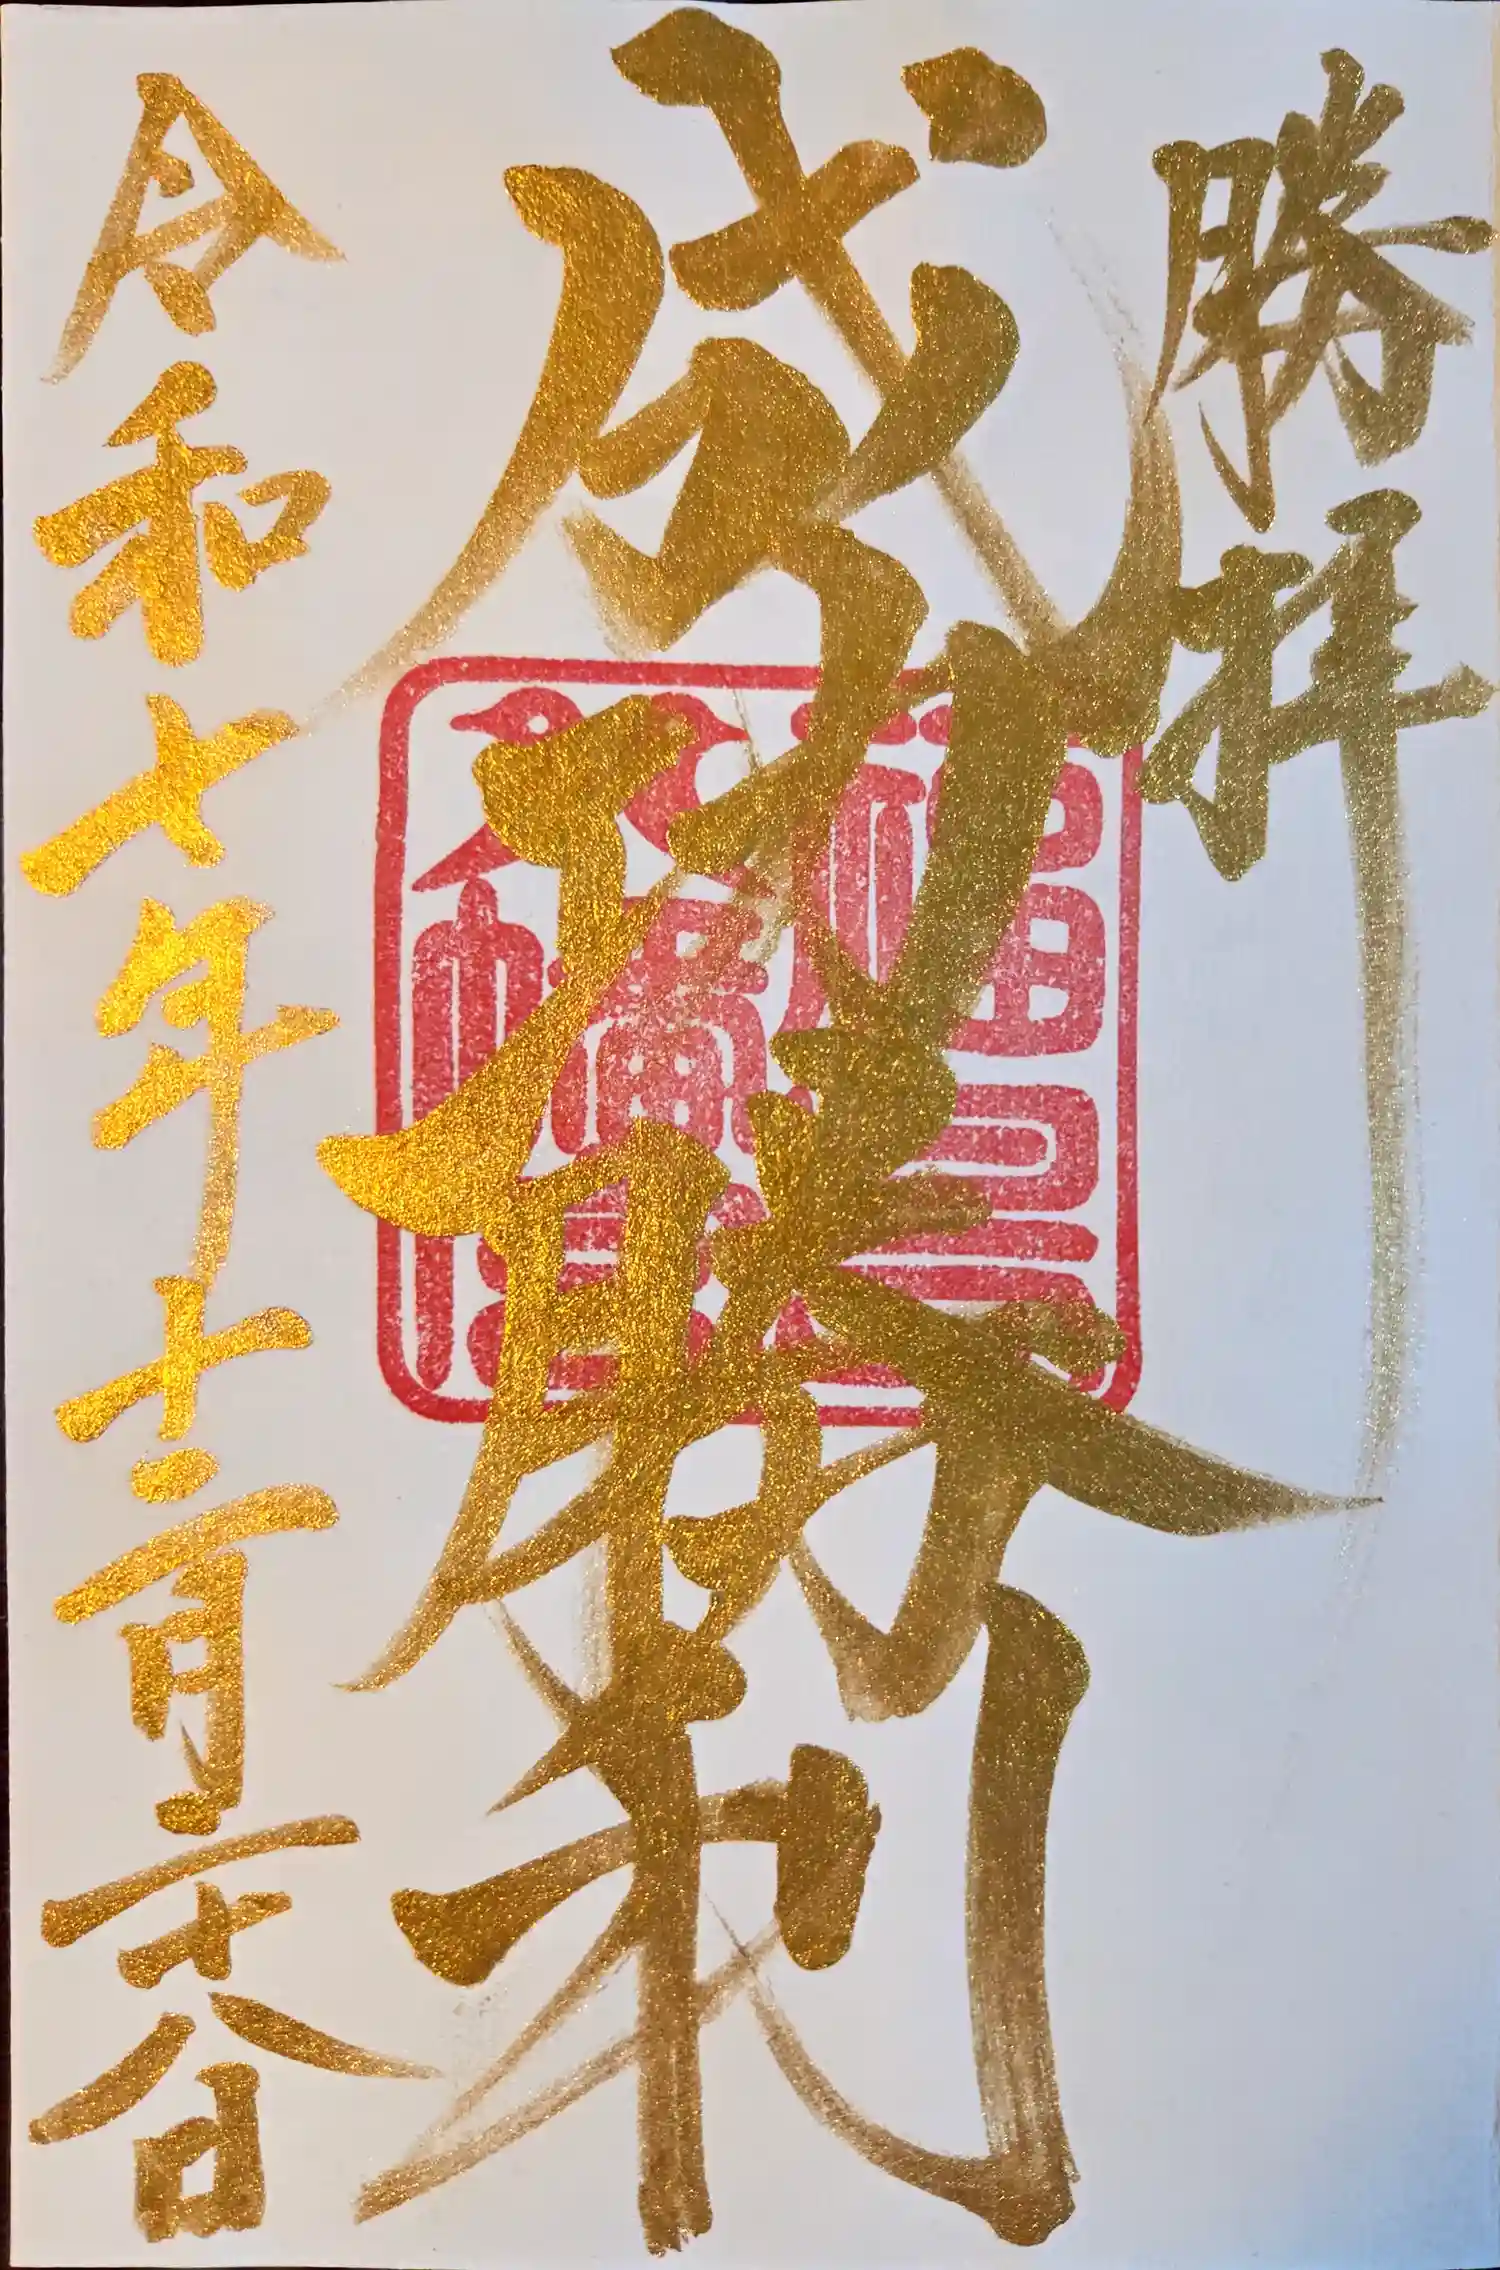 勝拝
成功勝利
令和七年十二月二十八日